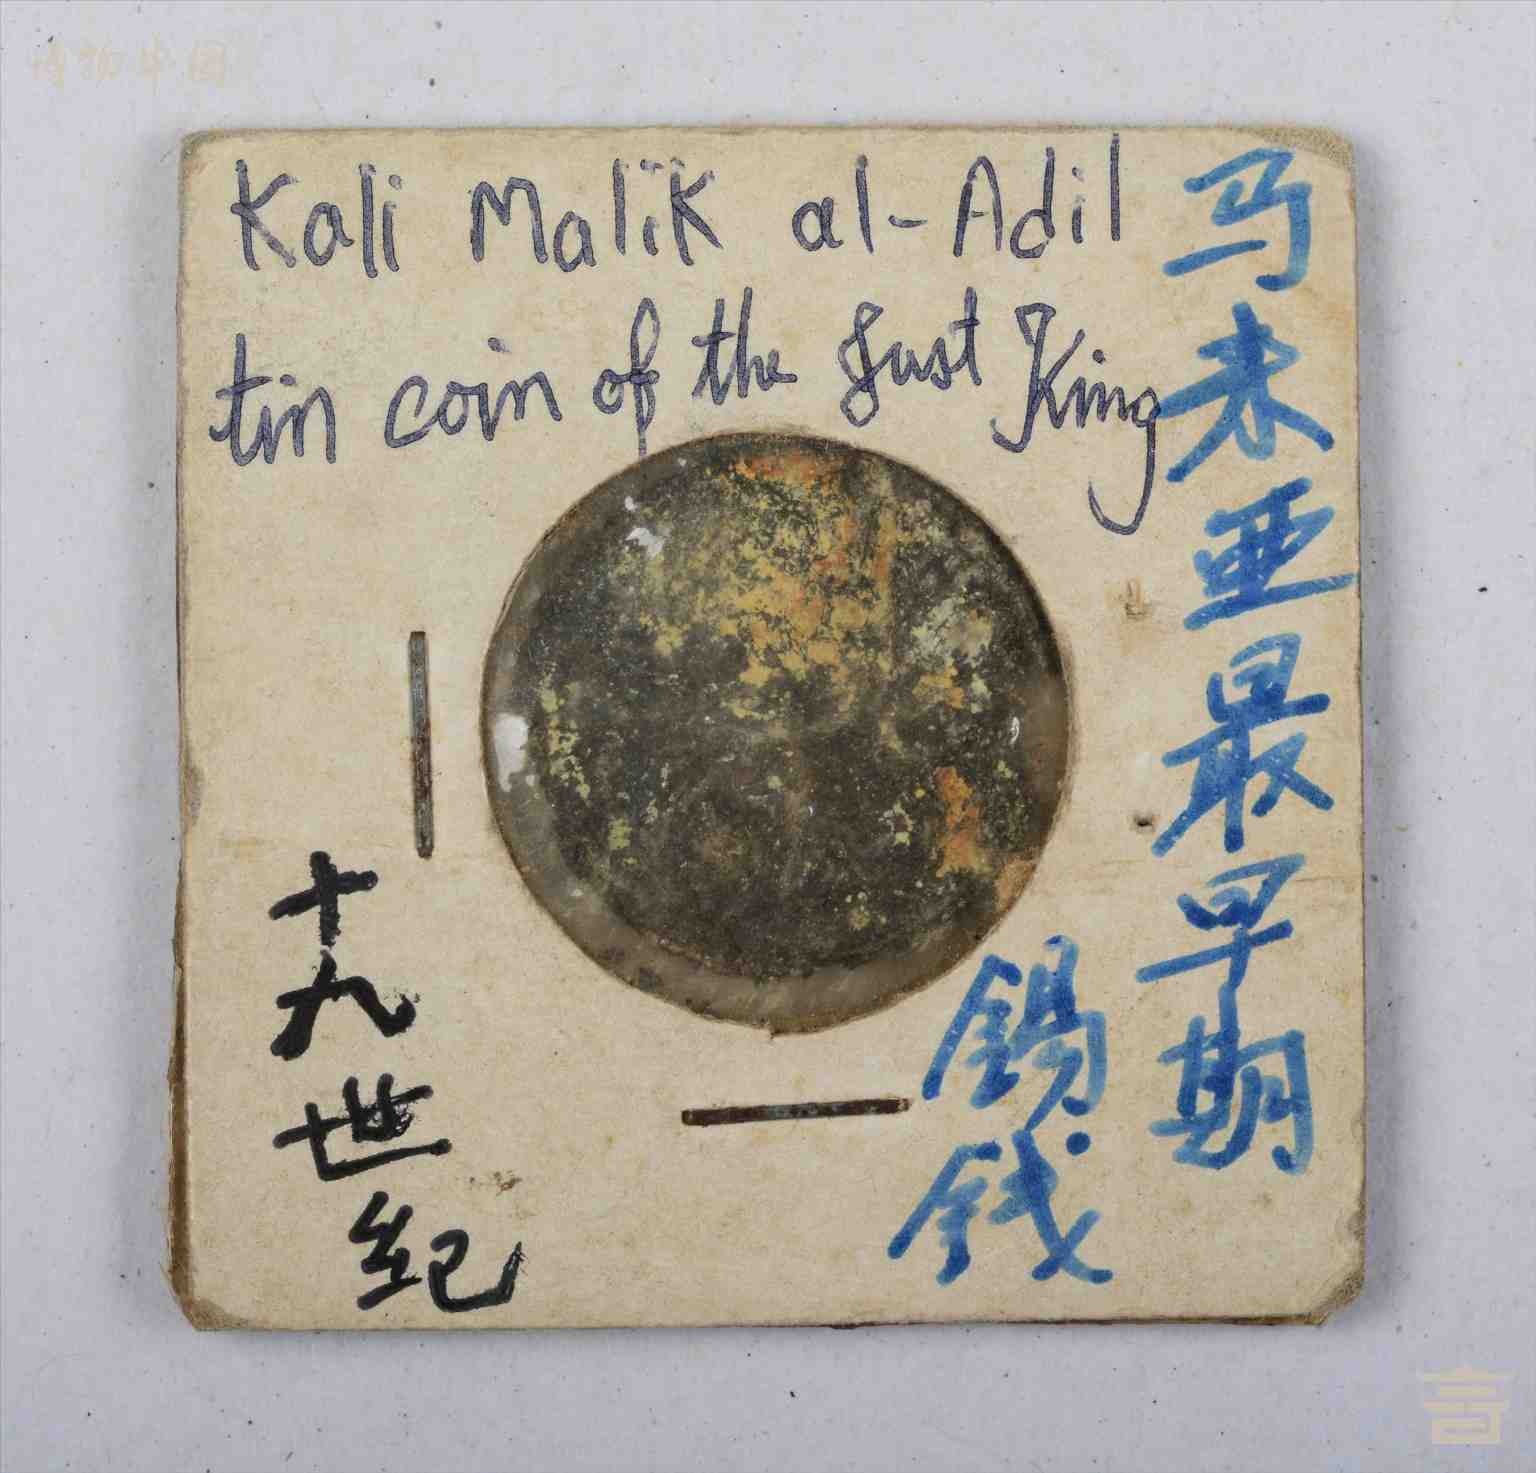 博物中国
Kali Malik al-Adil
tin coin of the Just King
马来亚最早期
錫钱
十九世纪